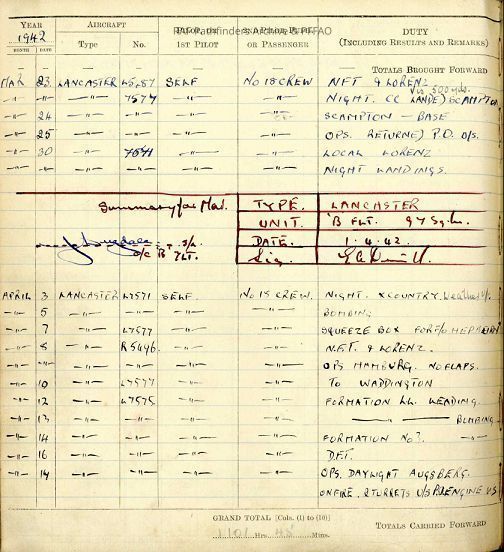 RAF Pathfinders Archive © RAFPAFFAO
YEAR AIRCRAFT PILOT, OR 2ND PILOT, PUPIL DUTY
1942 Type No. 1ST PILOT OR PASSENGER (INCLUDING RESULTS AND REMARKS)
MONTH DATE
TOTALS BROUGHT FORWARD
MAR 23 LANCASTER SELF No 18 CREW NFT & LORENZ
Vis 500 yds.
—"— —"— 7577 —"— —"— NIGHT. CC LANDED SCAMPTON
—"— 24 —"— —"— —"— —"— SCAMPTON – BASE
—"— 25 —"— —"— —"— —"— OPS. RETURNED P.O. O/S.
—"— 30 —"— —"— —"— LOCAL LORENZ
—"— —"— —"— —"— —"— —"— NIGHT LANDINGS.
Summary for Mar. TYPE. LANCASTER
UNIT. 'B' FLT. 97 Sqdn.
DATE. 1.4.42.
O/C 'B' FLT. Sig.
APRIL 3 LANCASTER L7571 SELF. No 18 CREW. NIGHT. XCOUNTRY. Weather
—"— 5 —"— —"— —"— —"— BOMBING
—"— 7 —"— L7577 —"— —"— SQUEEZE BOX FOR
—"— 8 —"— R5496. —"— —"— N.F.T. & LORENZ.
—"— —"— —"— —"— —"— —"— OPS HAMBURG. NO FLAPS.
—"— 10 —"— L7577 —"— —"— TO WADDINGTON
—"— 12 —"— L7575 —"— —"— FORMATION LL. LEADING.
—"— 13 —"— —"— —"— —"— —"— BOMBING
—"— 14 —"— —"— —"— —"— FORMATION No 2. —"—
—"— 16 —"— —"— —"— —"— D.F.T.
—"— 14 —"— —"— —"— —"— OPS. DAYLIGHT AUGSBERG.
ON FIRE. 2 TURRETS U/S P.I. ENGINE U/S
GRAND TOTAL [Cols. (1) to (10)]
1101 Hrs. 45 Mins.
TOTALS CARRIED FORWARD